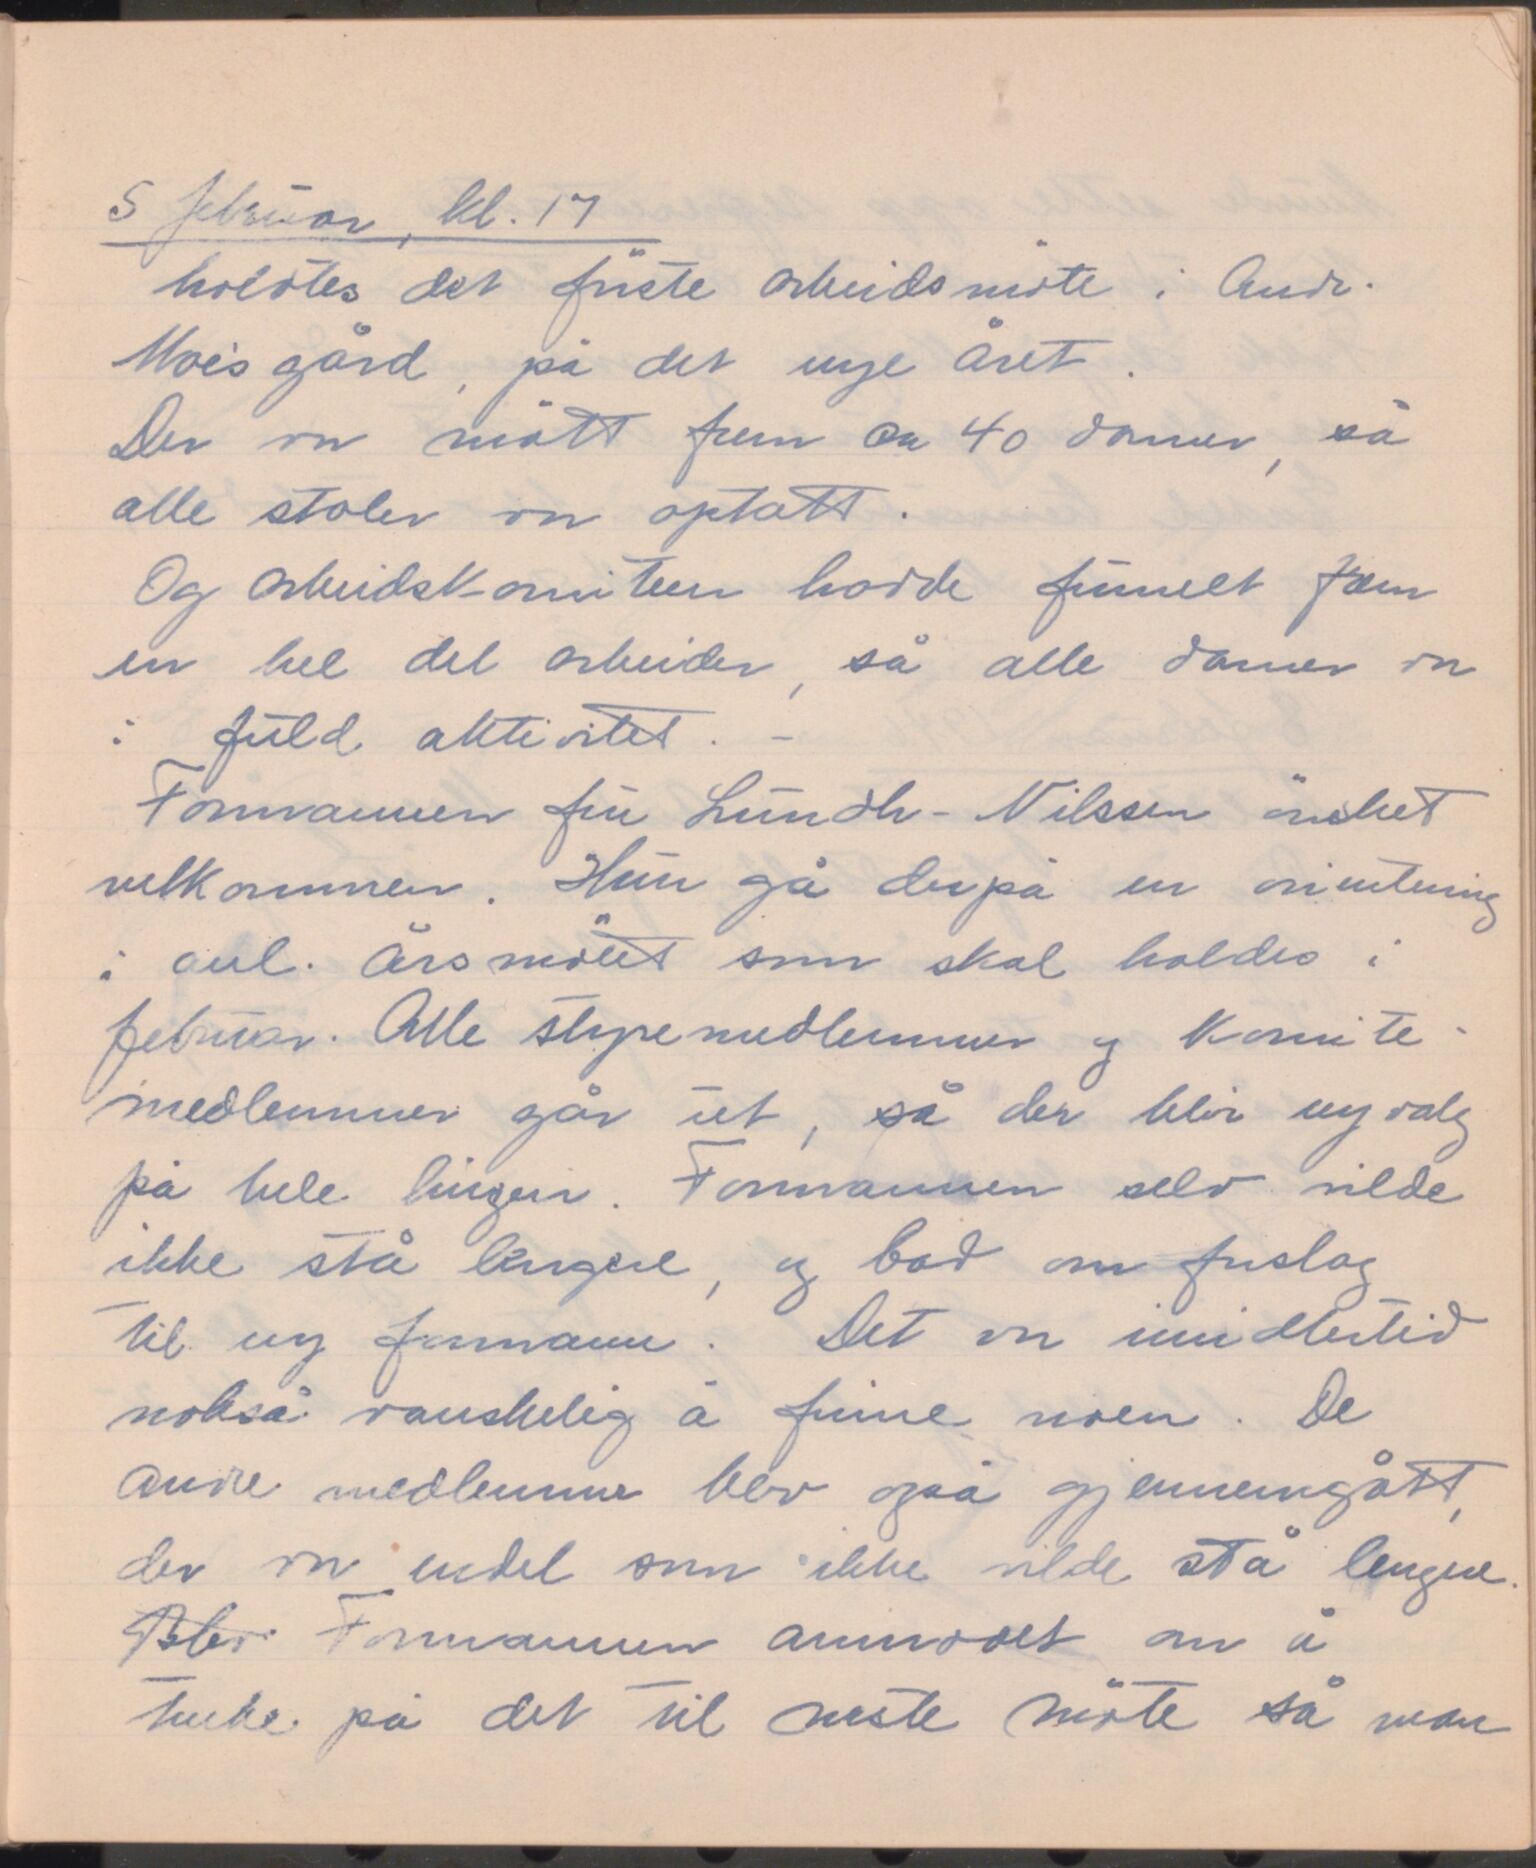 5 februar, kl. 17
holdtes det første arbeidsmöte i Andr.
Moe's gård, på det nye året.
Der var mött frem ca 40 damer, så
alle stoler var optatt.
Og arbeidskomiteen hadde funnet frem
en hel del arbeider, så alle damer var
i fuld aktivitet. –
Formannen fru Lundh-Nilssen önsket
velkommen. Hun ga derpå en orientering
i anl. Årsmötet som skal holdes i
februar. Alle styremedlemmer og Komite-
medlemmer går ut, så der blir nyvalg
på hele linjen. Formannen selv vilde
ikke stå lengere, og bad om forslag
til ny formann. Det var imidlertid
nokså vanskelig å finne noen. De
andre medlemmer blev også gjennemgått,
der var endel som ikke vilde stå lengere.
Blev Formannen anmodet om å
tenke på det til neste möte så man